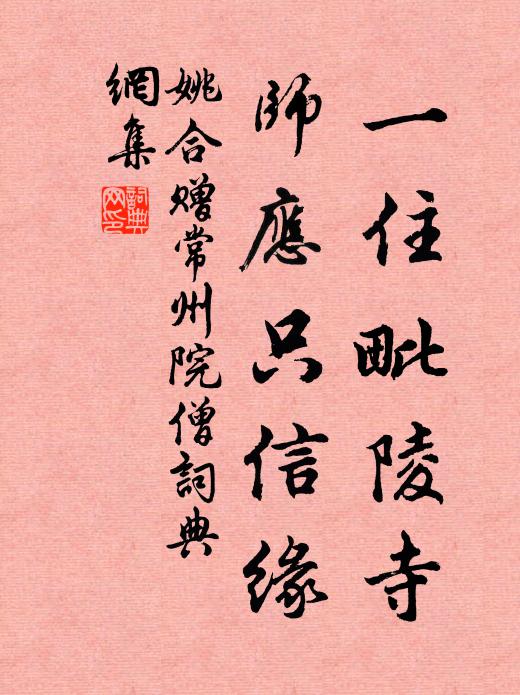 一住毗陵寺
師應只信緣
姚合贈常州院僧詞典
網集
詞典
网印